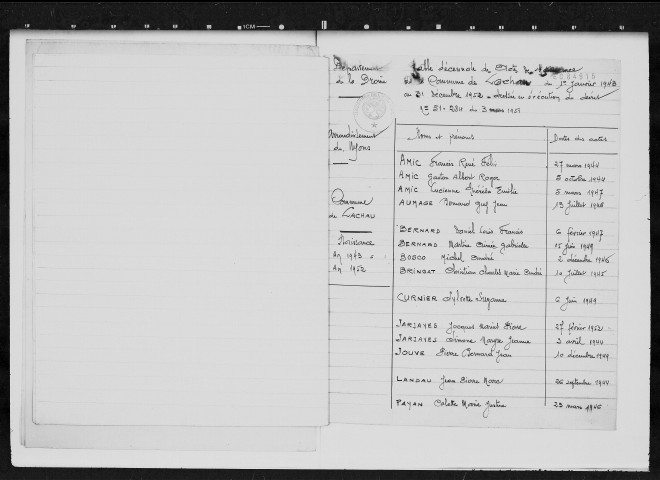 Département
de la Drôme
Arrondissement
de Nyons
Commune
de LACHAU
Naissance
An 1943
An 1952
Table décennale des Actes de Naissance
Commune de Lachau du 1er Janvier 1943
au 31 Décembre 1952 - dressée en exécution du décret
N° 51-284 du 3 mars 1951
Noms et prénoms Dates des actes
AMIC Francis René Félix 27 mars 1944
AMIC Gaston Albert Roger 8 octobre 1944
AMIC Lucienne Thérèse Emilie 5 mars 1947
AUMAGE Bernard Guy Jean 13 Juillet 1948
BERNARD Daniel Louis Francis 6 février 1947
BERNARD Martine Gabrielle 15 Juin 1949
BOSCO Michel André 2 décembre 1946
BRINGAT Christian Charles Marie André 10 Juillet 1945
CURNIER Sylvette Suzanne 6 Juin 1949
JARJAYES Jacques Pierre 27 février 1952
JARJAYES Maryse Jeanne 2 avril 1944
JOUVE Pierre Bernard Jean 10 décembre 1949
LANDAU Jean Pierre Marc 26 septembre 1944
PAYAN Colette Marie Justine 23 mars 1946